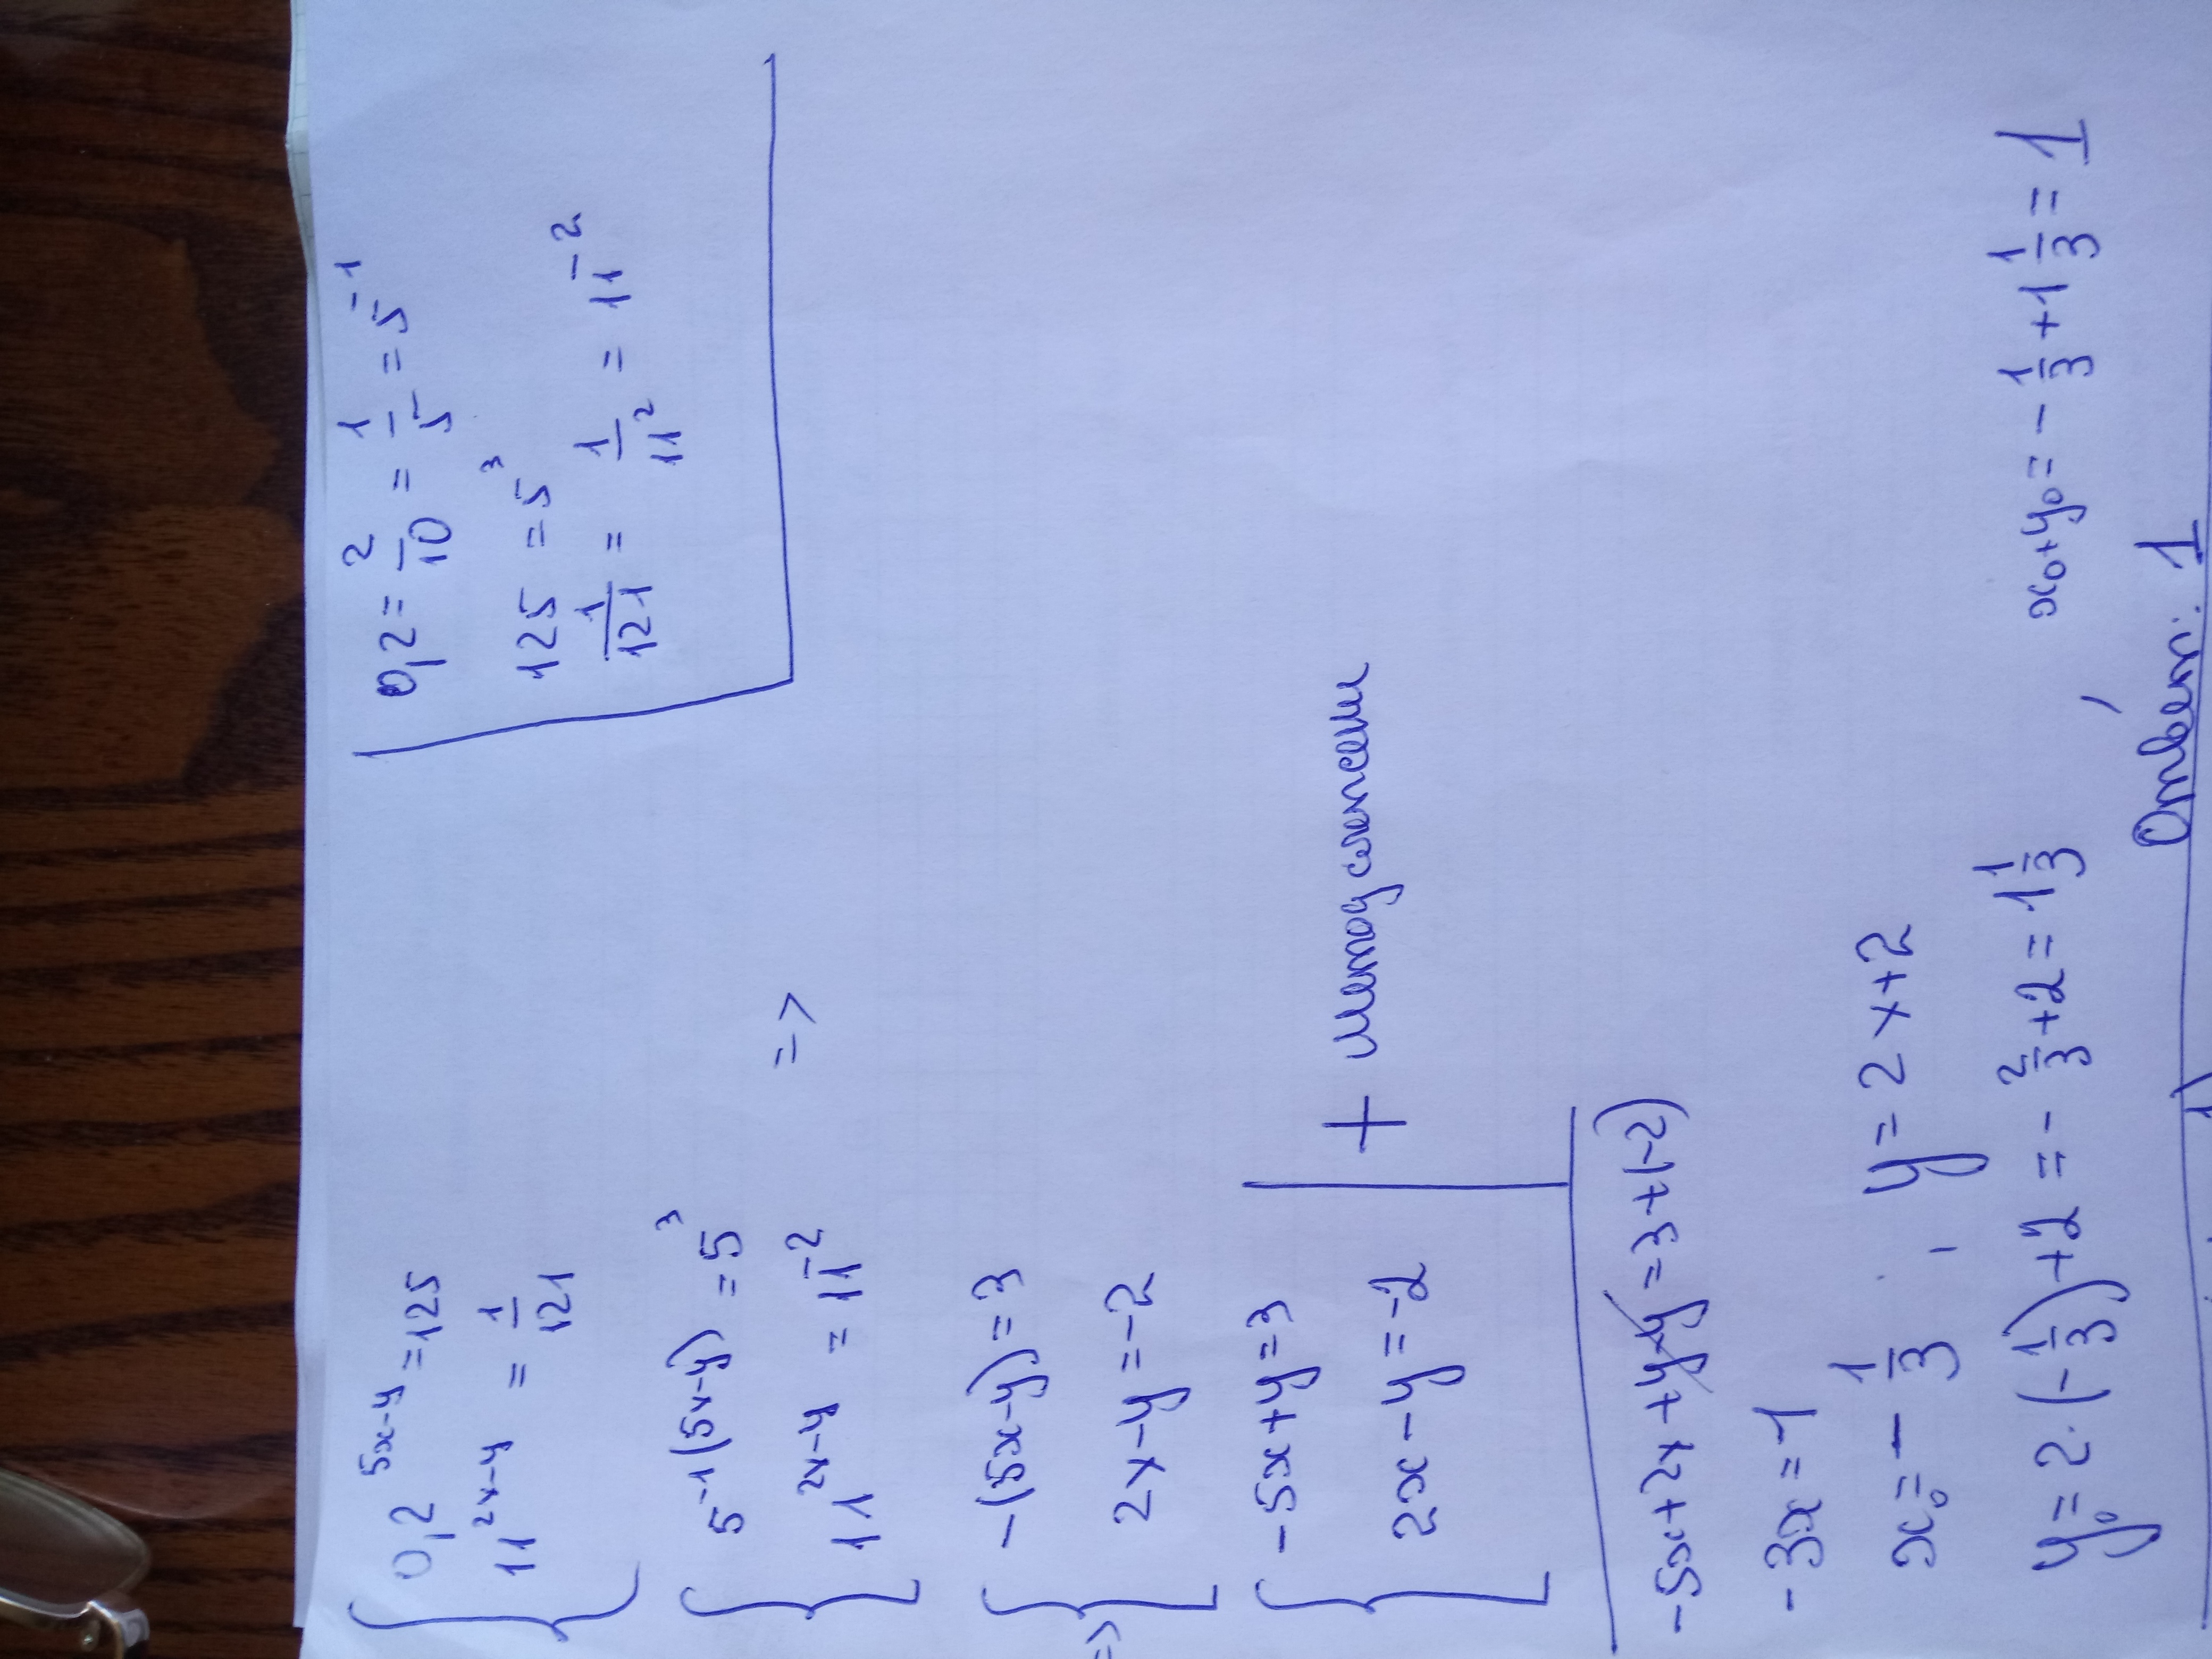 0,2^{5x-y} = 125
11^{2x-y} = \frac{1}{121}
0,2 = \frac{2}{10} = \frac{1}{5} = 5^{-1}
125 = 5^3
\frac{1}{121} = \frac{1}{11^2} = 11^{-2}
5^{-1(5x-y)} = 5^3
11^{2x-y} = 11^{-2}
=>
=>
-(5x-y) = 3
2x-y = -2
-5x+y = 3
2x-y = -2
+ метод сложени
-5x+2x+y-y = 3+(-2)
-3x = 1
x_0 = -\frac{1}{3} , y = 2x+2
y_0 = 2·(-\frac{1}{3})+2 = -\frac{2}{3}+2 = 1\frac{1}{3} , x_0+y_0 = -\frac{1}{3}+1\frac{1}{3} = 1
Ответ: 1